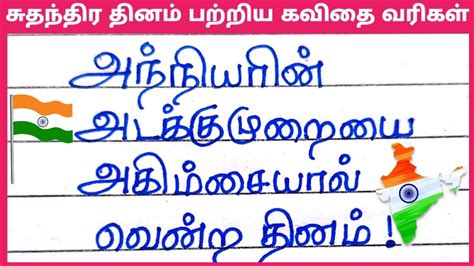 சுதந்திர தினம் பற்றிய கவிதை வரிகள்
அந்நியரின்
அடக்குமுறையை
அகிம்சையால்
வென்ற தினம் !